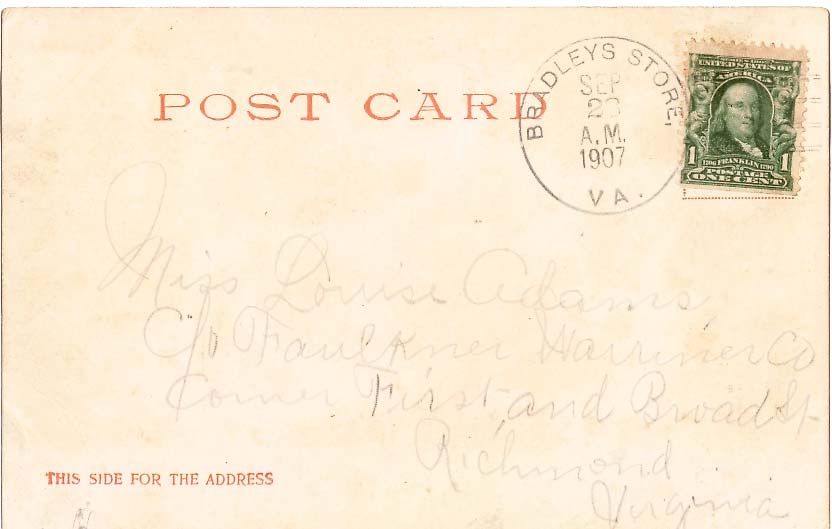 POST CARD
BRADLEYS STORE,
SEP
23
A.M.
1907
VA.
SERIES 1902
UNITED STATES OF
AMERICA
1 1706 FRANKLIN 1790 1
POSTAGE
ONE CENT
Miss Louise Adams,
C/o Faulkner Warriner Co
Corner First and Broad St.
Richmond
Virginia
THIS SIDE FOR THE ADDRESS